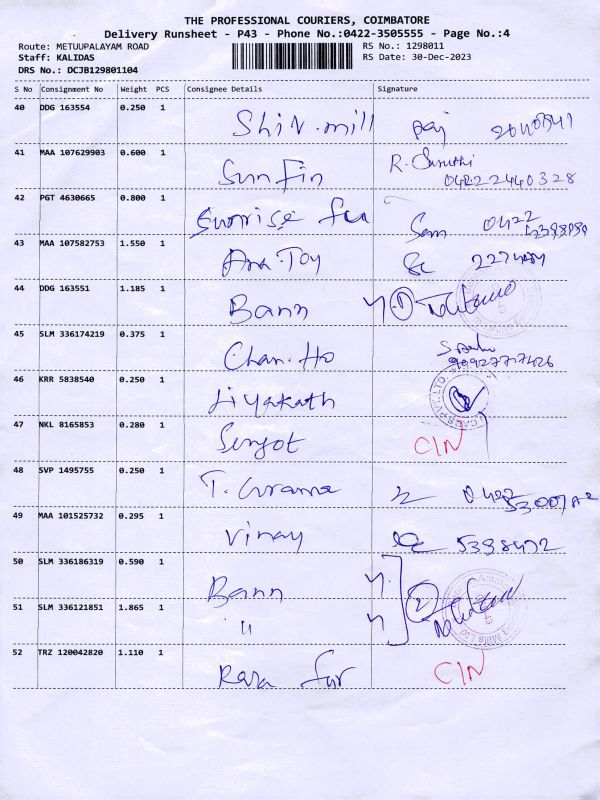 THE PROFESSIONAL COURIERS, COIMBATORE
Delivery Runsheet - P43 - Phone No.:0422-3505555 - Page No.:4
Route: METUUPALAYAM ROAD
RS No.: 1298011
Staff: KALIDAS
RS Date: 30-Dec-2023
DRS No.: DCJB129801104
S No Consignment No Weight PCS Consignee Details Signature
40 DDG 163554 0.250 1 Shiv.mill
41 MAA 107629903 0.600 1 Sun Fin R. 04222440328
42 PGT 4630665 0.800 1 Sunrise 0422
43 MAA 107582753 1.550 1 Toy
44 DDG 163551 1.185 1 Bann
45 SLM 336174219 0.375 1 Chan.Ho
46 KRR 5838540 0.250 1 Liyakath
47 NKL 8165853 0.280 1 CIN
48 SVP 1495755 0.250 1 T. 0422
49 MAA 101525732 0.295 1 Vinay 5398472
50 SLM 336186319 0.590 1 Bann
51 SLM 336121851 1.865 1 "
52 TRZ 120042820 1.110 1 CIN